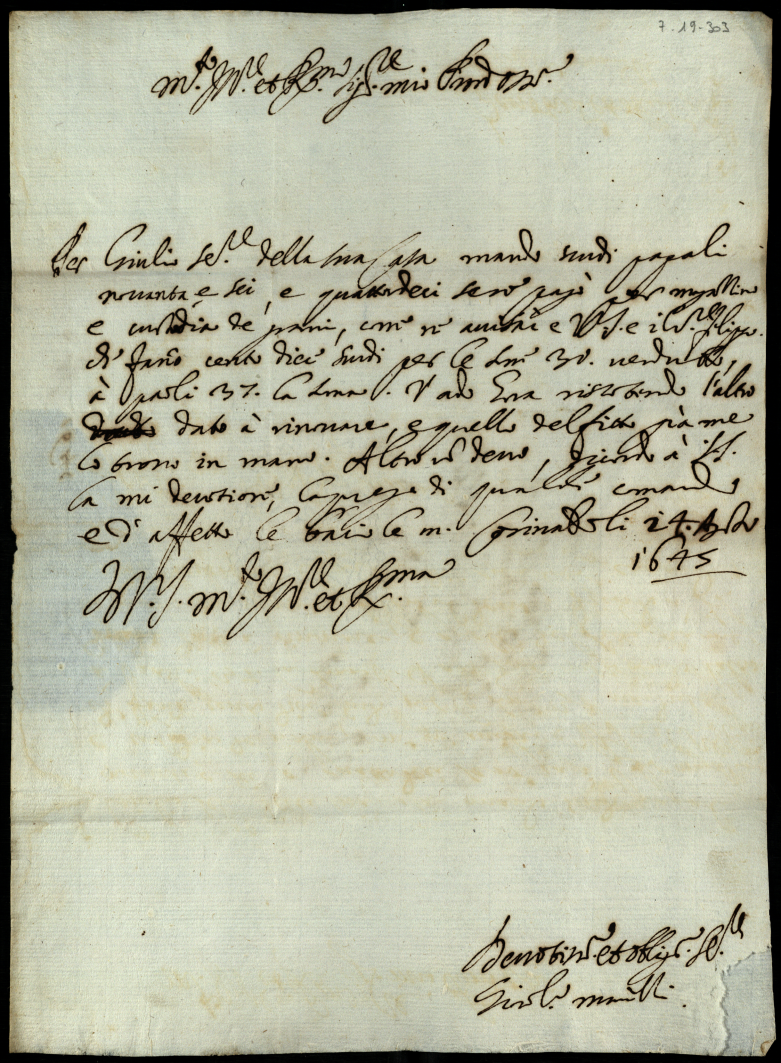 7-19-303
m.to Ill.re et R.mo Sig.re mio P.rone Oss.mo
Per Giulio se.re della sua Casa mando scudi papali
novanta e sei, e quattordeci se ne pagò per magazino
e custodia de grani, come ne avisai e V.S. e il S.r Filippo.
di Fano cento dieci scudi per le some 30. vendute,
à paoli 37. la soma. l'altro
dato à rinovare, e quello del fitto già me
lo trovo in mano. Altro nõ devo, dicendo à V.S.
la mi devotione, la prego di qualche comando
e d'affetto le bacio le m. Corinaldo li 24. Agosto
1645
Di V.S. m.to Ill.re et R.ma
Devotiss.o et oblig.mo se.re
Girol.o